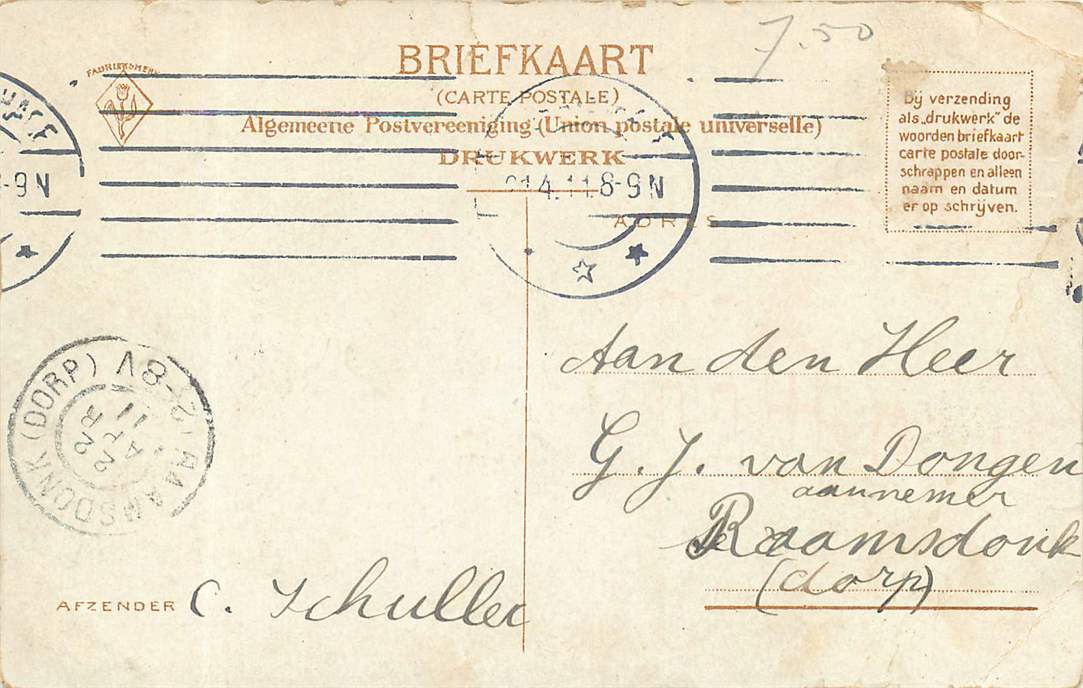 7.50
BRIEFKAART
FABRIEKSMERK
(CARTE POSTALE)
Algemeene Postvereeniging (Union postale universelle)
DRUKWERK
Bij verzending
als „drukwerk” de
woorden briefkaart
carte postale door-
schrappen en alleen
naam en datum
er op schrijven.
-9 N
4.11 8-9 N
ADRES
Aan den Heer
G. J. van Dongen
aannemer
Raamsdonk
(dorp)
RAAMSDONK (DORP)
22 APR 11
AFZENDER C. Schuller